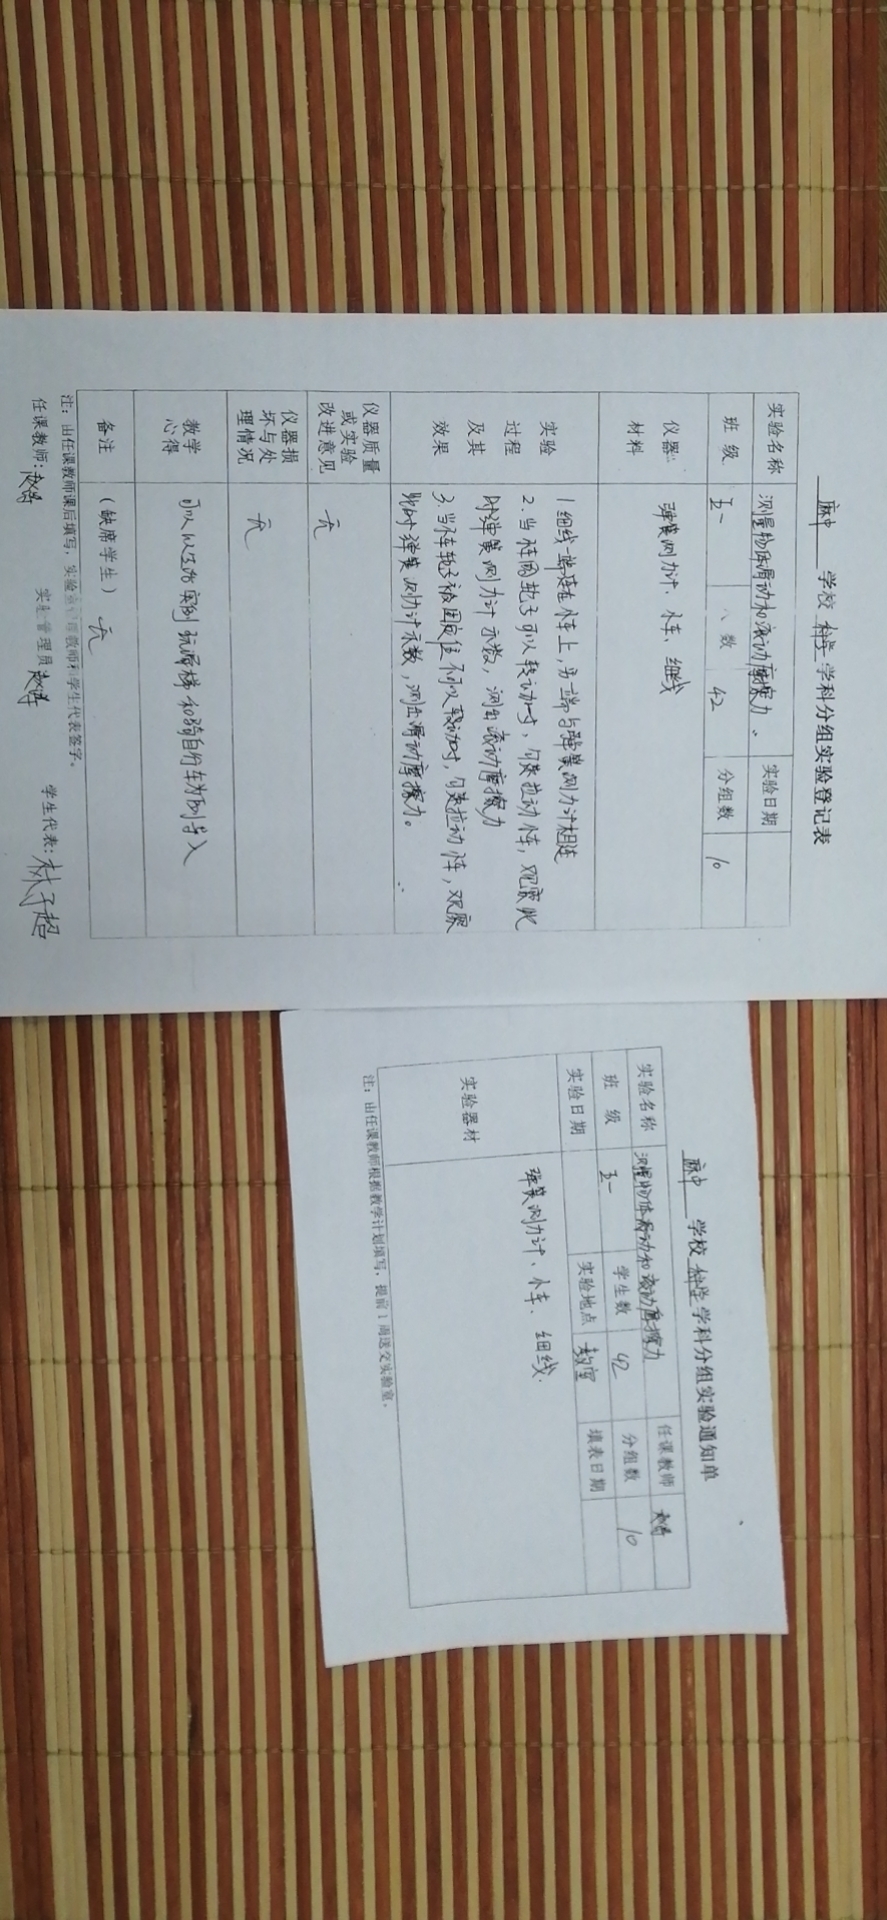 麻中 学校 科学 学科分组实验登记表
实验名称 测量物体滑动和滚动摩擦力。 实验日期
班级 五一 人数 42 分组数 10
仪器 材料 弹簧测力计、小车、细线
实验过程及其效果
1.细线一端连在小车上,另一端与弹簧测力计相连
2.当小车四轮子可以转动时,匀速拉动小车,观察此
时弹簧测力计示数,测出滚动摩擦力
3.当小车轮子被固定住不可以转动时,匀速拉动小车,观察
此时弹簧测力计示数,测出滑动摩擦力。
仪器质量或实验改进意见 无
仪器损坏与处理情况 无
教学心得 可以以生活实例玩滑梯和骑自行车为例导入
备注 (缺席学生) 无
注:由任课教师课后填写,实验室管理教师和学生代表签字。
任课教师: 实验管理员 学生代表:林子超
麻中 学校 科学 学科分组实验通知单
实验名称 测量物体滑动和滚动摩擦力 任课教师
班级 五一 学生数 42 分组数 10
实验日期 实验地点 教室 填表日期
实验器材 弹簧测力计、小车、细线.
注:由任课教师根据教学计划填写,提前1周送交实验室。